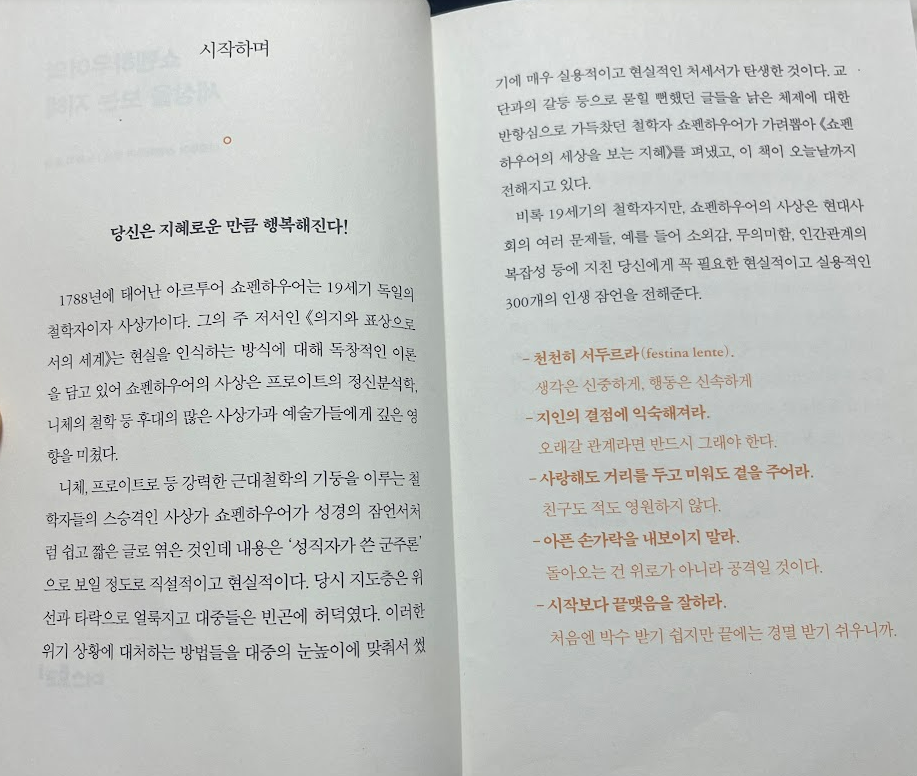 시작하며
당신은 지혜로운 만큼 행복해진다!
1788년에 태어난 아르투어 쇼펜하우어는 19세기 독일의
철학자이자 사상가이다. 그의 주 저서인 《의지와 표상으로
서의 세계》는 현실을 인식하는 방식에 대해 독창적인 이론
을 담고 있어 쇼펜하우어의 사상은 프로이트의 정신분석학,
니체의 철학 등 후대의 많은 사상가과 예술가들에게 깊은 영
향을 미쳤다.
니체, 프로이트로 등 강력한 근대철학의 기둥을 이루는 철
학자들의 스승격인 사상가 쇼펜하우어가 성경의 잠언서처
럼 쉽고 짧은 글로 엮은 것인데 내용은 ‘성직자가 쓴 군주론’
으로 보일 정도로 직설적이고 현실적이다. 당시 지도층은 위
선과 타락으로 얼룩지고 대중들은 빈곤에 허덕였다. 이러한
위기 상황에 대처하는 방법들을 대중의 눈높이에 맞춰서 썼
기에 매우 실용적이고 현실적인 처세서가 탄생한 것이다. 교
단과의 갈등 등으로 묻힐 뻔했던 글들을 낡은 체제에 대한
반항심으로 가득찼던 철학자 쇼펜하우어가 가려뽑아 《쇼펜
하우어의 세상을 보는 지혜》를 펴냈고, 이 책이 오늘날까지
전해지고 있다.
비록 19세기의 철학자지만, 쇼펜하우어의 사상은 현대사
회의 여러 문제들, 예를 들어 소외감, 무의미함, 인간관계의
복잡성 등에 지친 당신에게 꼭 필요한 현실적이고 실용적인
300개의 인생 잠언을 전해준다.
– 천천히 서두르라(festina lente).
생각은 신중하게, 행동은 신속하게
– 지인의 결점에 익숙해져라.
오래갈 관계라면 반드시 그래야 한다.
– 사랑해도 거리를 두고 미워도 곁을 주어라.
친구도 적도 영원하지 않다.
– 아픈 손가락을 내보이지 말라.
돌아오는 건 위로가 아니라 공격일 것이다.
– 시작보다 끝맺음을 잘하라.
처음엔 박수 받기 쉽지만 끝에는 경멸 받기 쉬우니까.